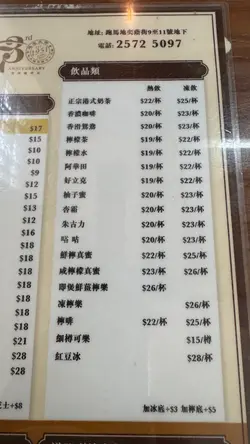 地址: 跑馬地奕蔭街9至11號地下
電話: 2572 5097
rd
ANNIVERSARY
飲品類
熱飲 凍飲
正宗港式奶茶 $22/杯 $25/杯
香濃咖啡 $20/杯 $23/杯
香滑鴛鴦 $20/杯 $23/杯
檸檬茶 $19/杯 $22/杯
檸檬水 $19/杯 $22/杯
阿華田 $19/杯 $22/杯
好立克 $19/杯 $22/杯
柚子蜜 $20/杯 $23/杯
杏霜 $20/杯 $23/杯
朱古力 $20/杯 $23/杯
咕 $20/杯 $23/杯
鮮檸真蜜 $22/杯 $25/杯
咸檸檬真蜜 $23/杯 $26/杯
即煲鮮薑檸樂 $26/杯
凍檸樂 $26/杯
檸啡 $22/杯 $25/杯
樽可樂 $15/樽
紅豆冰 $28/杯
加冰底+$3 加檸底+$5
$17
$15
$15
$10
$10
$9
$12
$15
$16
$18
$18
$16
$18
$18
$18
$21
$28
芝士+$8